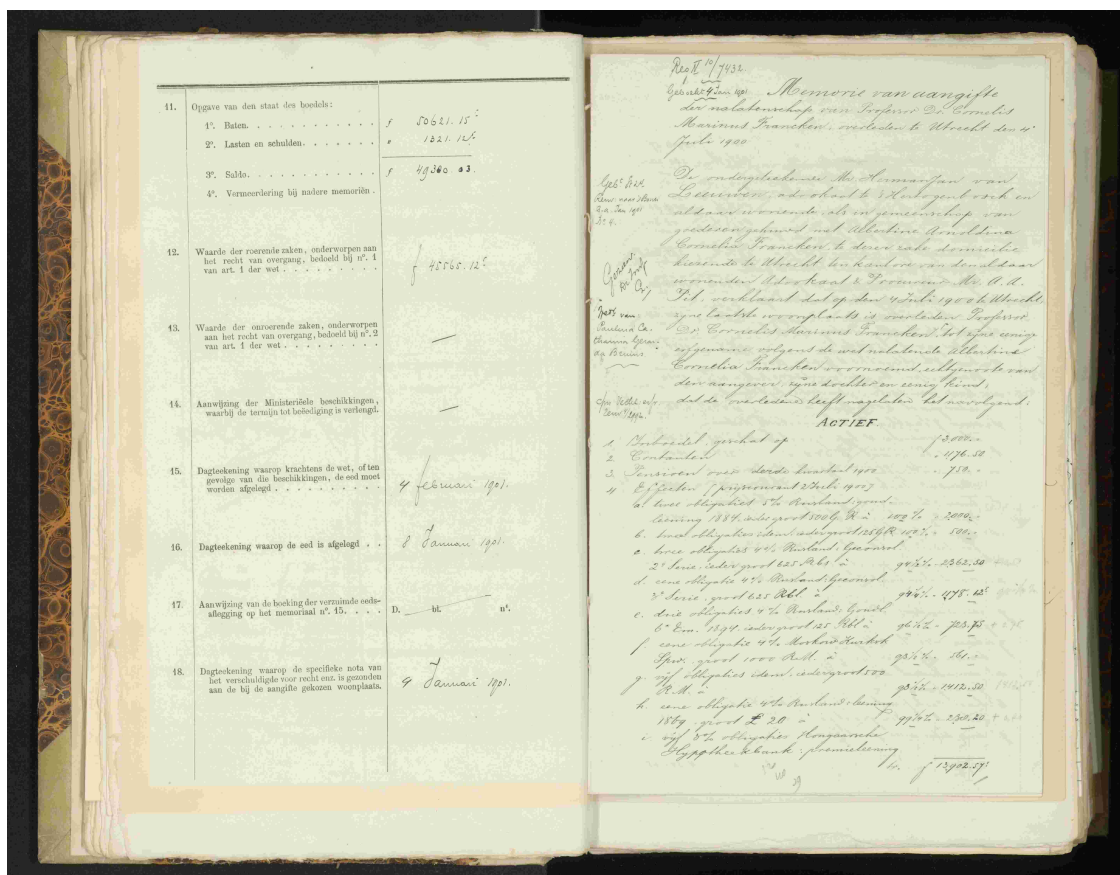 11. Opgave van den staat des boedels:
1°. Baten. f 50621.15⁵
2°. Lasten en schulden. " 1321.12⁵
3°. Saldo. f 49300.03.
4°. Vermeerdering bij nadere memoriën.
12. Waarde der roerende zaken, onderworpen aan
het recht van overgang, bedoeld bij n°. 1
van art. 1 der wet f 45565.12⁵
13. Waarde der onroerende zaken, onderworpen
aan het recht van overgang, bedoeld bij n°. 2
van art. 1 der wet —
14. Aanwijzing der Ministeriëele beschikkingen,
waarbij de termijn tot beëediging is verlengd. —
15. Dagteekening waarop krachtens de wet, of ten
gevolge van die beschikkingen, de eed moet
worden afgelegd 4 februari 1901.
16. Dagteekening waarop de eed is afgelegd 8 Januari 1901.
17. Aanwijzing van de boeking der verzuimde eeds-
aflegging op het memoriaal n°. 15. D. bl. n°.
18. Dagteekening waarop de specifieke nota van
het verschuldigde voor recht enz. is gezonden
aan de bij de aangifte gekozen woonplaats. 9 Januari 1901.
Reg II 10/7432
4 Jan 1901. Memorie van aangifte
der nalatenschap van Professor Dr. Cornelis
Marinus Francken, overleden te Utrecht den 4ⁿ
Juli 1900
De ondergeteekende Mr. Herman Jan van
Leeuwen, advokaat te 's Hertogenbosch en
aldaar wonende, als in gemeenschap van
goederen gehuwd met Albertine Arnoldina
Cornelia Francken, te dezer zake domicilie
kiezende te Utrecht ten kantore van den aldaar
wonenden Advokaat & Procureur Mr. A. A.
Pit, verklaart dat op den 4 Juli 1900 te Utrecht,
zijne laatste woonplaats is overleden Professor
Dr. Cornelis Marinus Francken, tot zijne eenige
erfgename volgens de wet nalatende Albertine
Cornelia Francken voornoemd, echtgenoote van
den aangever, zijne dochter en eenig kind;
dat de overledene heeft nagelaten het navolgend:
ACTIEF
1. Inboedel, geschat op f 3,000.-
2. Contanten " 476.50
3. Pensioen over derde kwartaal 1900 " 750.-
4. Effecten (prijscourant 2 Juli 1900)
a. twee obligaties 5% Rusland: goud-
leening 1884, ieder groot 500 G. R. à 100% " 2000.-
b. twee obligaties idem, ieder groot 125 G.R. 100% " 500.-
c. twee obligaties 4% Rusland: Geconsol.
2ᵉ Serie, ieder groot 625 Rbl à 94½% " 2362.50
d. eene obligatie 4% Rusland: Geconsol.
3ᵉ Serie, groot 625 Rbl à " 1178.12⁵
e. drie obligaties 4% Rusland: Goudl.
6ᵉ Em. 1894, ieder groot 125 Rbl à " 723.75
f. eene obligatie 4% Moskou Kursk
groot 1000 R.M. à " 561.-
g. vijf obligaties idem, ieder groot 500
R.M. à " 1412.50
h. eene obligatie 4% Rusland: leening
1869, groot £ 20 à " 230.20
i. vijf 3% obligaties Hongaarsche
Hypotheekbank: premieleening
f 13,902.57⁵
Zoon van
Paulina Ca-
tharina Gerar-
da Bruins